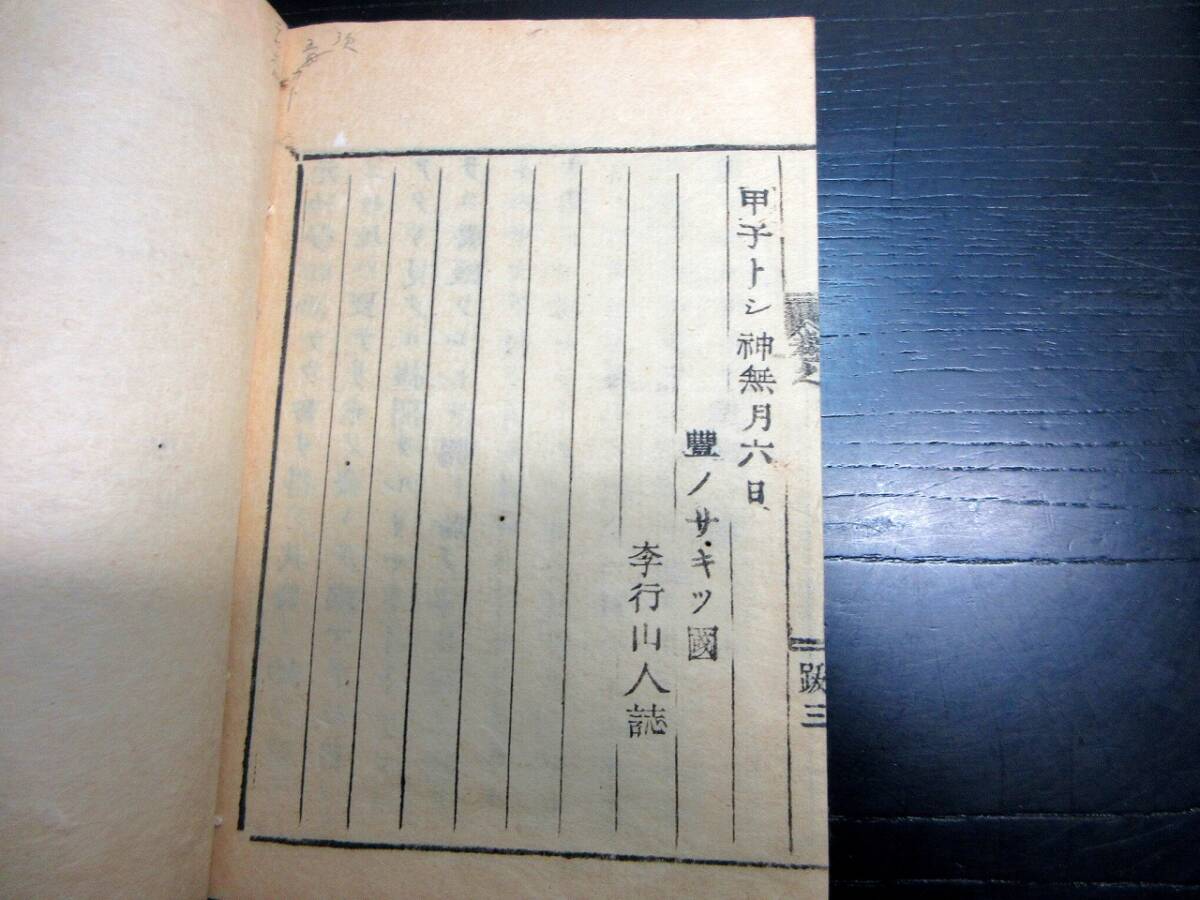 甲子トシ神無月六日
豐ノサキツ國
李行山人誌
跋三